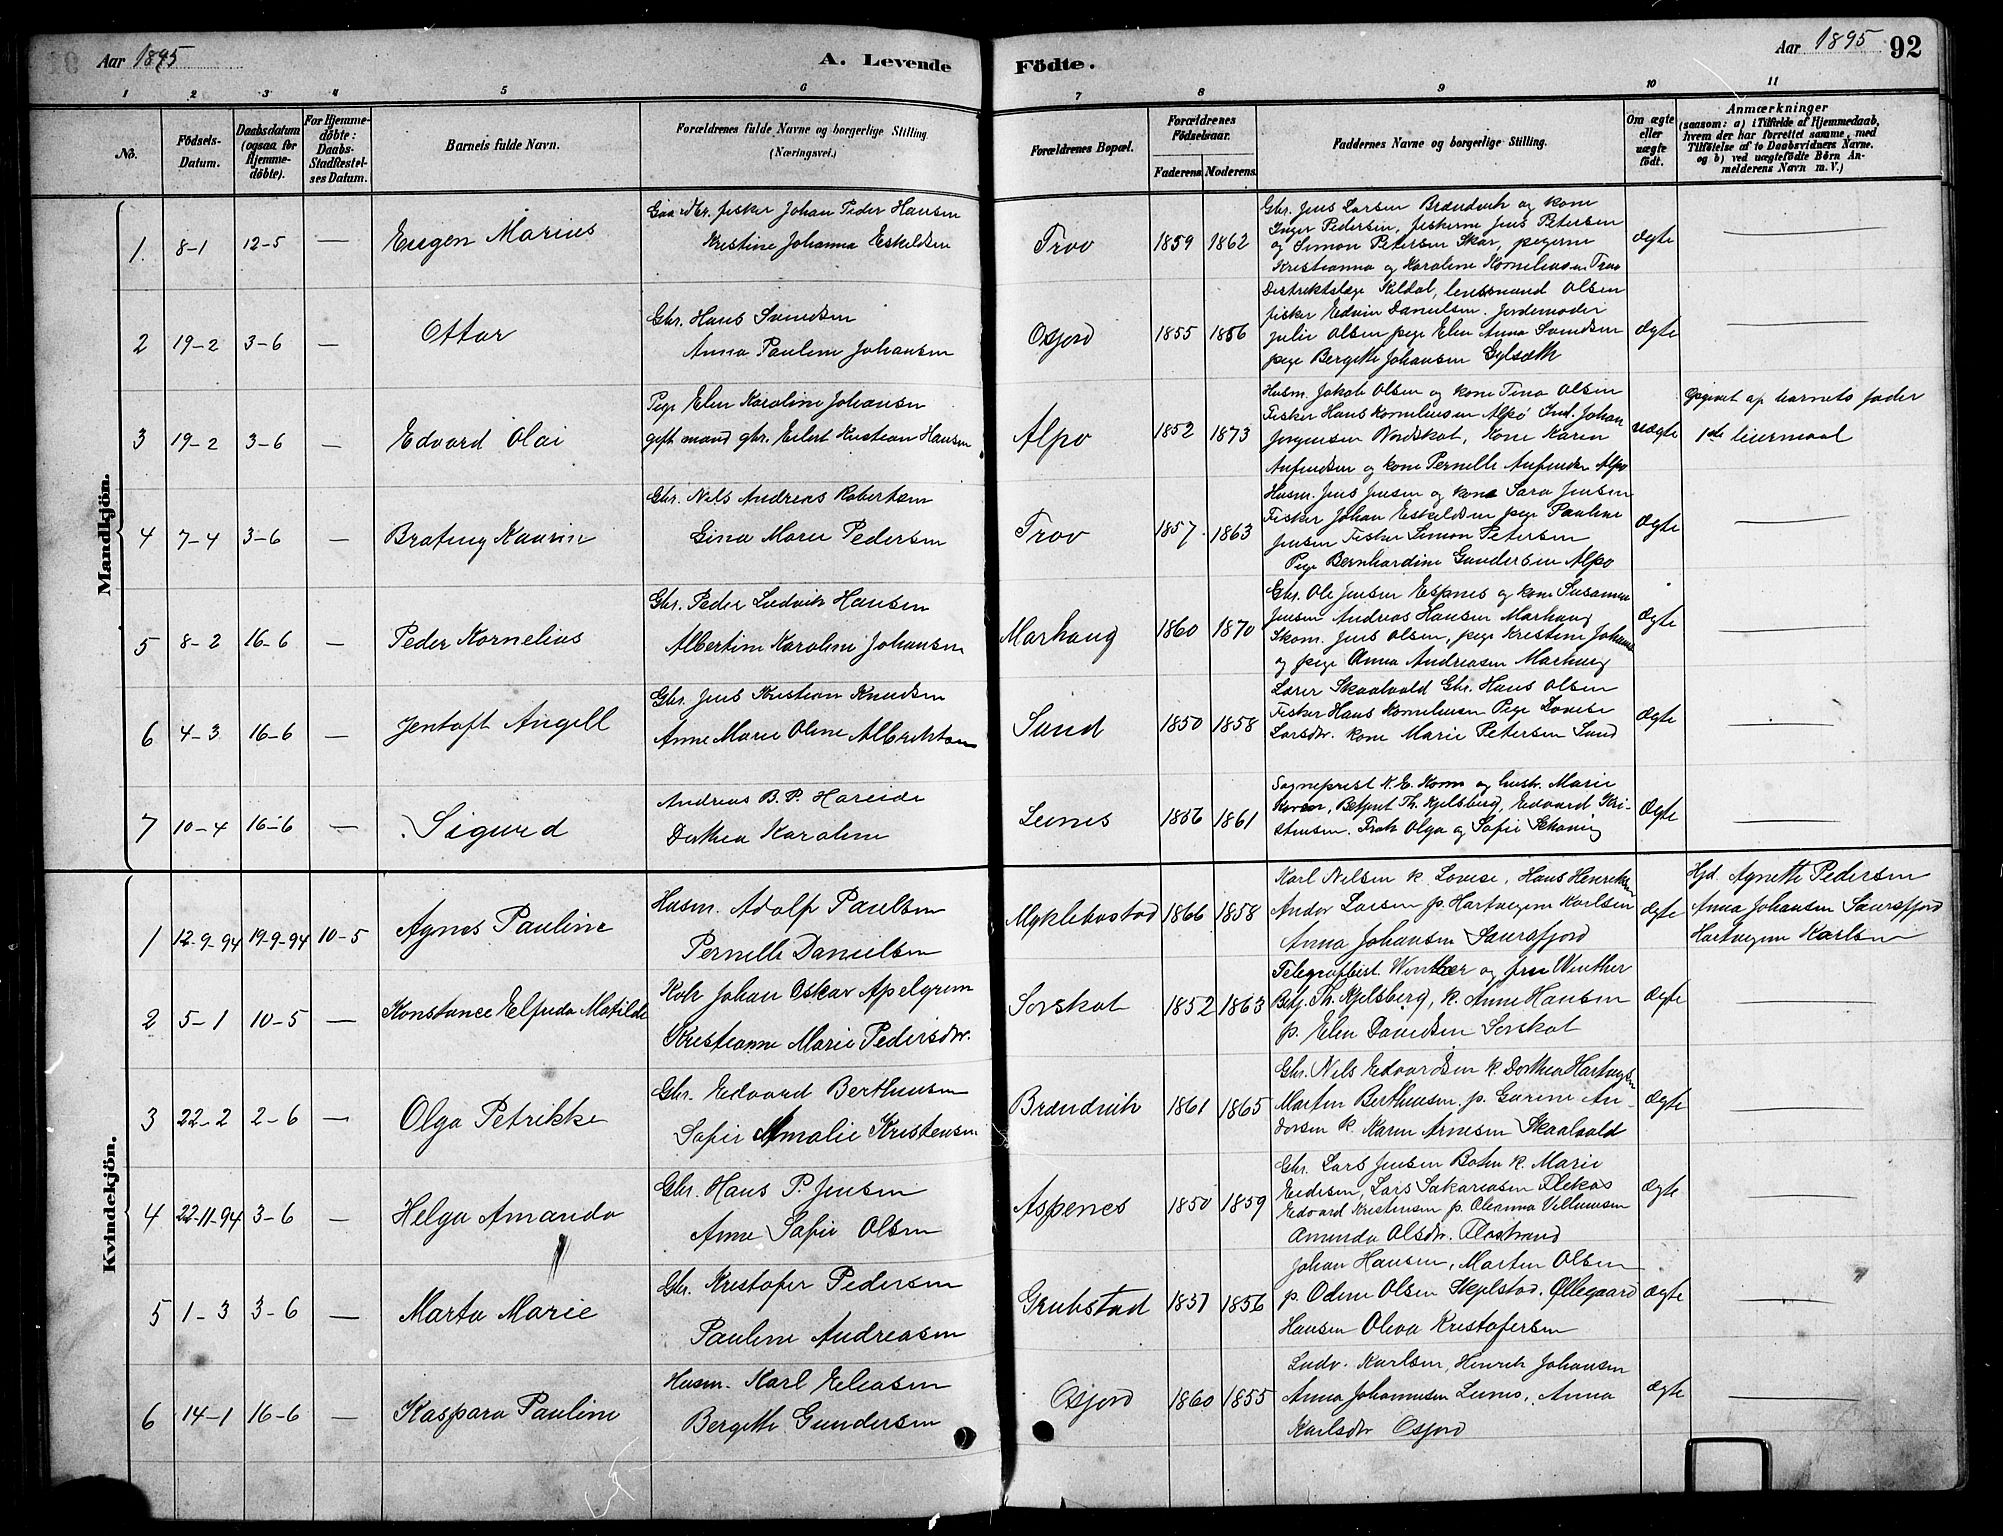 Aar 1895
A. Levende
Födte.
Aar 1895 92
1 2 3 4 5 6 7 8 9 10 11
No.
Födsels-
Datum.
Daabsdatum
(ogsaa for
Hjemme-
döbte).
For Hjemme-
döbte:
Daabs-
Stadfæstel-
ses Datum.
Barnets fulde Navn.
Forældrenes fulde Navne og borgerlige Stilling.
(Næringsvei.)
Forældrenes Bopæl.
Forældrenes
Födselsaar.
Faderens. Moderens.
Faddernes Navne og borgerlige Stilling.
Om ægte
eller
uægte
födt.
Anmærkninger
(saasom: a) i Tilfælde af Hjemmedaab,
hvem der har forrettet samme, med
Tilföielse af to Daabsvidners Navne.
og b) ved uægtefödte Börn An-
melderens Navn m. V.)
Mandkjön.
1. 8-1 12-5 — Eugen Marius
Gaardbr. fisker Johan Peder Hansen
Kristine Johanna Eskildsen
Trov 1859 1862
Gbr. Jens Larsen Brændvik og kone
Inger Pedersen, fiskerne Jens Petersen
og Simon Petersen Skar, pigerne
Kristianna og Karoline Korneliussen Trov
Ægte —
2 19-2 3-6 — Ottar
Gbr. Hans Svendsen
Anna Pauline Johansen
Osfjord 1855 1856
Distriktslæge Kildal, lensmand Olsen
fisker Edvin Danielsen. Jordemoder
Julie Olsen pige Elen Anna Svendsen
pige Bergitte Johansen Gylsæth
Ægte —
3 19-2 3-6 — Edvard Olai
Pige Elen Karoline Johansen
gift mand gbr. Eilert Kristian Hansen
Alpø 1852 1873
Husm. Jakob Olsen og kone Tina Olsen
Fisker Hans Korneliussen Alpø Ind. Johan
Jørgensen Nordskot, Kone Karen
Anfindsen og kone Pernelle Anfindsen Alpø
uægte
Opgivet af barnets fader
1ste leiermaal
4 7-4 3-6 —
Gbr. Nils Andreas Robertsen
Gina Marie Pedersen
Trov 1857 1863
Husm. Jens Jensen og kone Sara Jensen
Fisker Johan Eskildsen pige Pauline
Jensen Fisker Simon Petersen
Pige Bernhardine Gundersen Alpø
Ægte —
5 8-2 16-6 — Peder Kornelius
Gbr. Peder Ludvik Hansen
Albertine Karoline Johansen
Marhaug 1860 1870
Gbr. Ole Jensen Espnes og kone Susanna
Jensen Andreas Hansen Marhaug
Skom. Jens Olsen, pige Kristine Johanns
og pige Anna Andreasen Marhaug
Ægte —
6 4-3 16-6 — Jentoft Angell
Gbr. Jens Kristian Knudsen
Anne Marie Oline Albriktsen
Sund 1850 1858
Lærer Skaalvold Gbr. Hans Olsen
Fisker Hans Korneliussen Pige Lovise
Larsdtr. kone Marie Petersen Sund
Ægte —
7 10-4 16-6 — Sigurd
Andreas B. P. Hareide
Dorthea Karoline
Leines 1856 1861
Sogneprest K. E. Korn og hustr. Marie
Betjent Th. Kjelsberg, Edvard Kri-
stensen. Frøk Olga og Sofie Schøning
Ægte —
Kvindekjön.
1 12-9-94 19-9-94 10-5 Agnes Pauline
Husm. Adolf Paulsen
Pernelle Danielsen
Myklebostad 1866 1858
Karl Nilsen k. Lovise, Hans Henriksen
Andor Larsen p. Hartvigine Karlsen
Anna Johansen Saursfjord
Ægte
Hjd. Agnette Pedersen
Anna Johansen Saursfjord
Hartvigine Karlsen
2 5-1 10-5 — Konstance Elfrida Matilde
Johan Oskar Apelgren
Kristianne Marie Pedersdtr.
Sørskot 1852 1863
Telegrafbest. Winther og fru Winther
Betj. Th. Kjelsberg, k. Anne Hansen
p. Elen Davidsen Sørskot
Ægte —
3 22-2 2-6 — Olga Petrikke
Gbr. Edvard Berthinsen
Sofie Amalie Kristensen
Brændvik 1861 1865
Gbr. Nils Edvardsen k. Dorthea Hartvigsen
Marten Berthinsen, p. Gurine An-
dorsen k. Karen Arnesen Skaalvold
Ægte —
4 22-11-94 3-6 — Helga Amanda
Gbr. Hans P. Jensen
Anne Sofie Olsen
Aspenes 1850 1859
Gbr. Lars Jensen Boten k. Marie
Endresen, Lars Sakariasen Flekas
Edvard Kristensen p. Oleanna Villumsen
Amanda Olsdtr. Flostrand
Ægte —
5 1-3 3-6 — Marta Marie
Gbr. Kristofer Pedersen
Pauline Andreasen
Grubstad 1857 1856
Johan Hansen, Marten Olsen
p. Odine Olsen Skjelstad. Øllegaard
Hansen Oleva Kristofersen
Ægte —
6 14-1 16-6 — Kaspara Pauline
Husm. Karl Eliasen
Bergitte Gundersen
Osfjord 1860 1855
Ludv. Karlsen, Henrik Johansen
Anna Johannesen Leines, Anna
Karlsdtr Osfjord
Ægte —